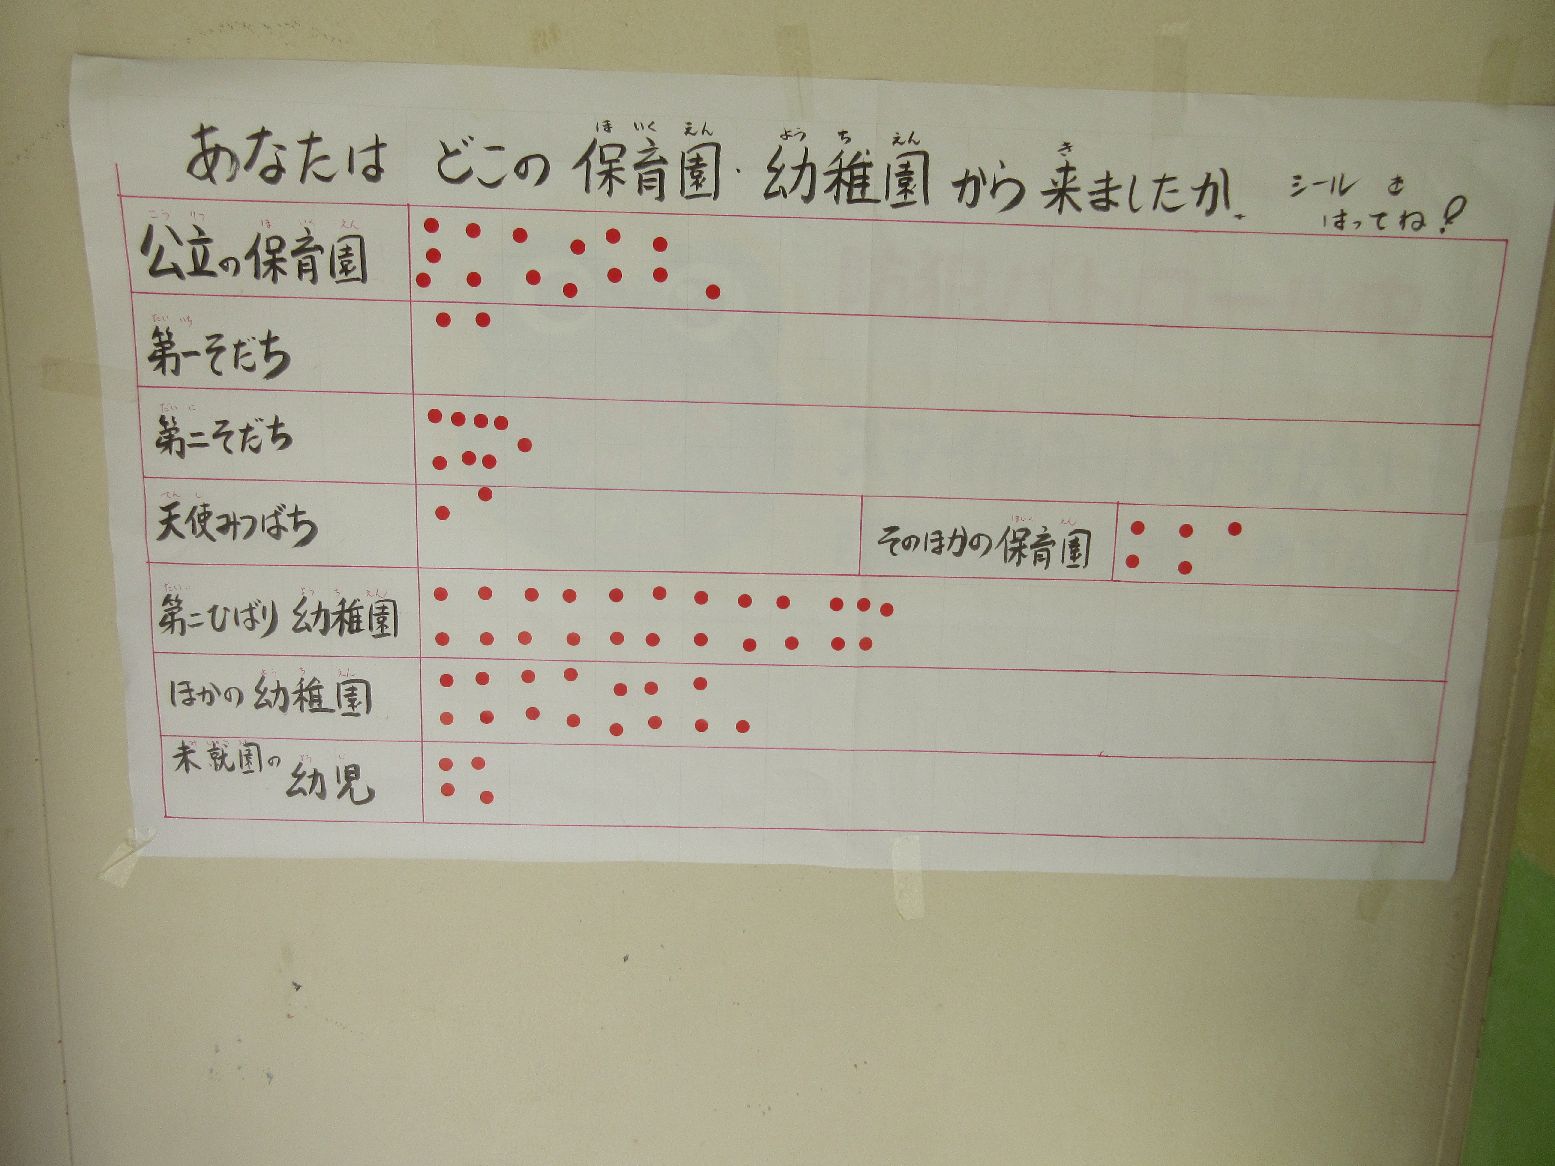 あなたは どこの 保育園・幼稚園 から 来ましたか。
ほ いく えん よう ち えん き
シール を
はってね!
こう りつ ほ いく えん
公立の保育園
だい いち
第一そだち
だい に
第二そだち
てん し
天使みつばち
ほいく えん
そのほかの保育園
だい に よう ち えん
第二ひばり 幼稚園
よう ち えん
ほかの 幼稚園
未就園の
幼児